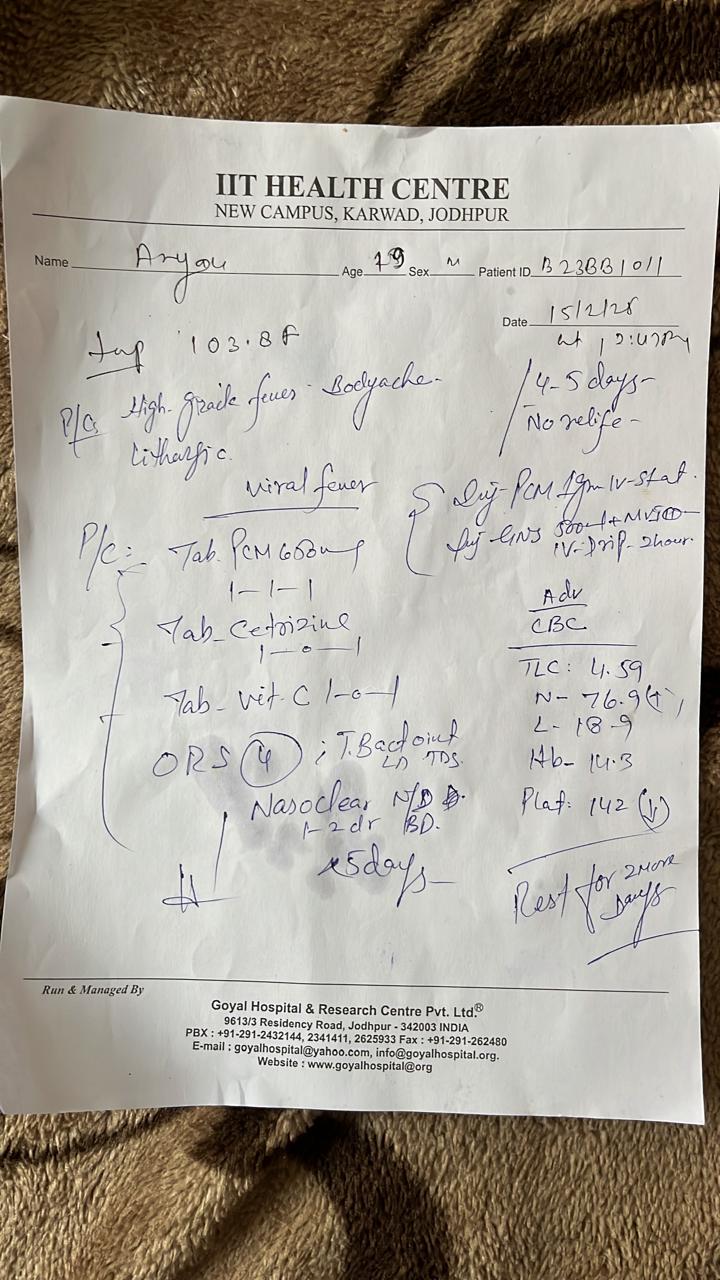 IIT HEALTH CENTRE
NEW CAMPUS, KARWAD, JODHPUR
Name Aryan Age 19 Sex M Patient ID B23BB1011
Date 15/2/25
at
103.8F
P/C High-grade fever - Bodyache -
4-5 days-
No relife-
Lithargic
Viral fever
Inj-PCM 1gm-IV-Stat.
Inj-GNS 500ml+MVI
IV-Drip-2hour.
Tab. PCM 650mg
1-1-1
Tab- Cetrizine
1-0-1
Tab- Vit. C 1-0-1
ORS (4) ; T. Bact oint
LA TDS
Nasoclear N/D
1-2 dr BD.
x5days
Adv
CBC
TLC: 4.59
N- 76.9(↑)
L- 18.9
Hb- 14.3
Plat: 142 (↓)
Rest for 2 more
Days
Run & Managed By
Goyal Hospital & Research Centre Pvt. Ltd.®
9613/3 Residency Road, Jodhpur - 342003 INDIA
PBX : +91-291-2432144, 2341411, 2625933 Fax : +91-291-262480
E-mail : goyalhospital@yahoo.com, info@goyalhospital.org.
Website : www.goyalhospital@org